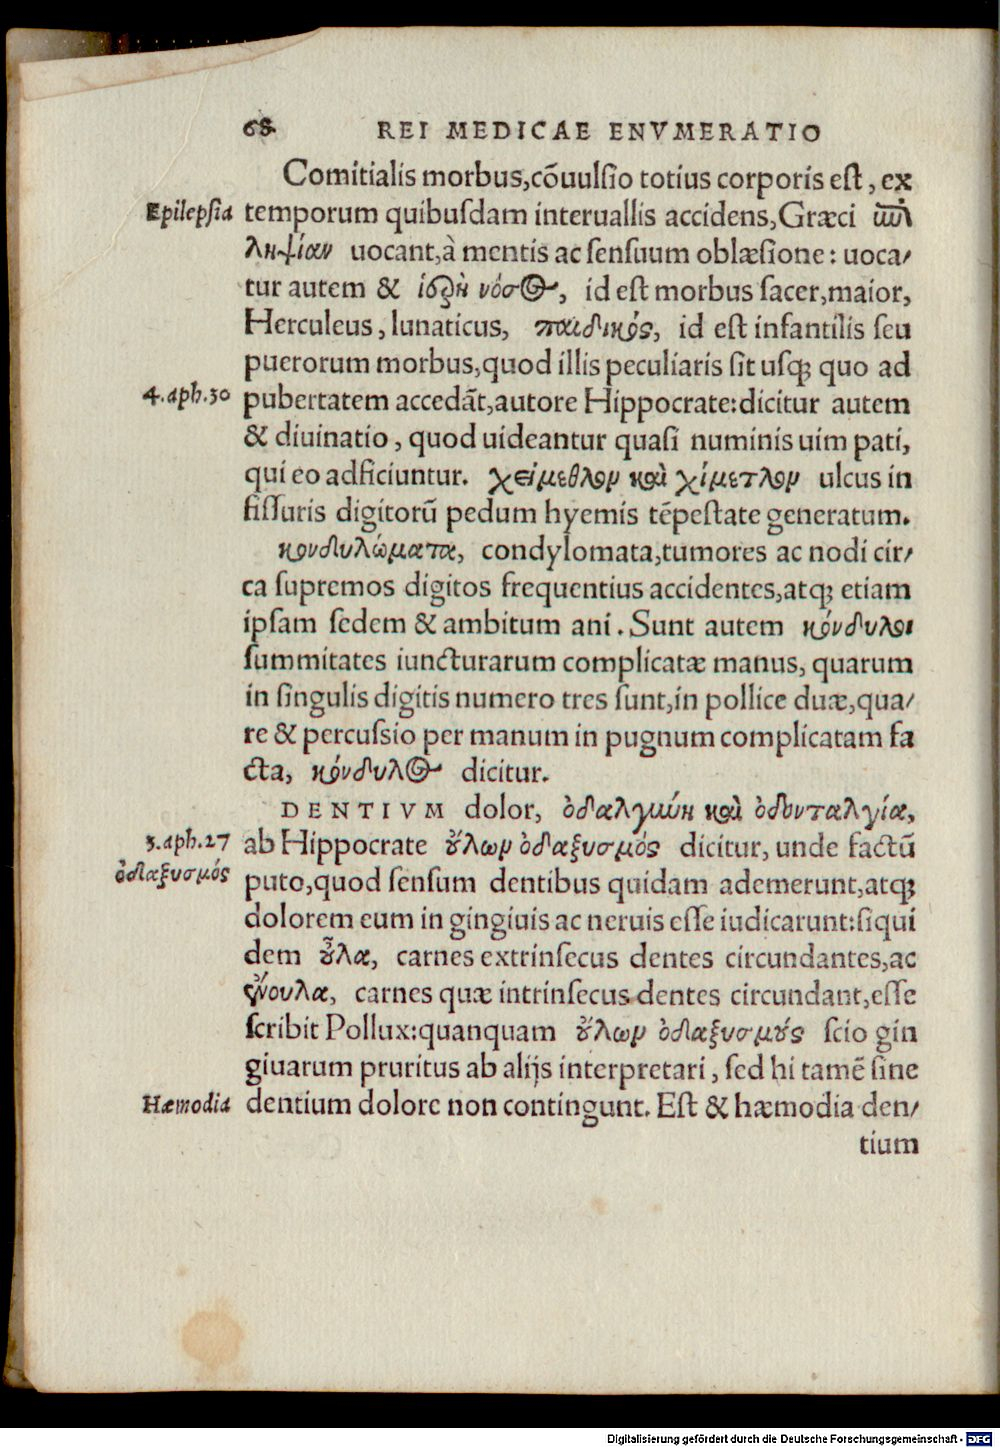 68 REI MEDICAE ENVMERATIO
Comitialis morbus,cõuulsio totius corporis est, ex
Epilepsia
temporum quibusdam interuallis accidens,Græci ἐπι
ληψίαν uocant,à mentis ac sensuum oblæsione: uoca/
tur autem & ἱερὴ νόσος, id est morbus sacer,maior,
Herculeus, lunaticus, παιδικός, id est infantilis seu
puerorum morbus,quod illis peculiaris sit usq; quo ad
4.aph.30
pubertatem accedãt,autore Hippocrate:dicitur autem
& diuinatio, quod uideantur quasi numinis uim pati,
qui eo adficiuntur. χείμεθλον καὶ χίμετλον ulcus in
fissuris digitorũ pedum hyemis tẽpestate generatum.
κονδυλώματα, condylomata,tumores ac nodi cir/
ca supremos digitos frequentius accidentes,atq; etiam
ipsam sedem & ambitum ani. Sunt autem κόνδυλοι
summitates iuncturarum complicatæ manus, quarum
in singulis digitis numero tres sunt,in pollice duæ,qua/
re & percussio per manum in pugnum complicatam fa
cta, κόνδυλος dicitur.
DENTIVM dolor, ὀδαλγμὴ καὶ ὀδονταλγία,
3.aph.27
ab Hippocrate οὔλων ὀδαξυσμός dicitur, unde factũ
ὀδαξυσμός
puto,quod sensum dentibus quidam ademerunt,atq;
dolorem eum in gingiuis ac neruis esse iudicarunt:siqui
dem οὖλα, carnes extrinsecus dentes circundantes,ac
ἔνουλα, carnes quæ intrinsecus dentes circundant,esse
scribit Pollux:quanquam οὔλων ὀδαξυσμούς scio gin
giuarum pruritus ab alijs interpretari, sed hi tamẽ sine
Hæmodia
dentium dolore non contingunt. Est & hæmodia den/
tium
Digitalisierung gefördert durch die Deutsche Forschungsgemeinschaft - DFG